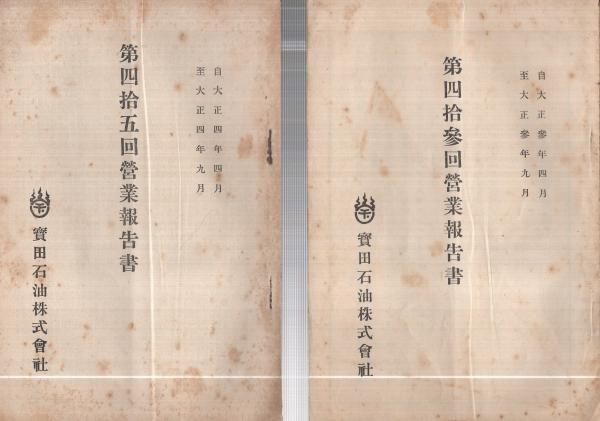 自大正參年四月
至大正參年九月
第四拾參回營業報告書
寶田石油株式會社
自大正四年四月
至大正四年九月
第四拾五回營業報告書
寶田石油株式會社